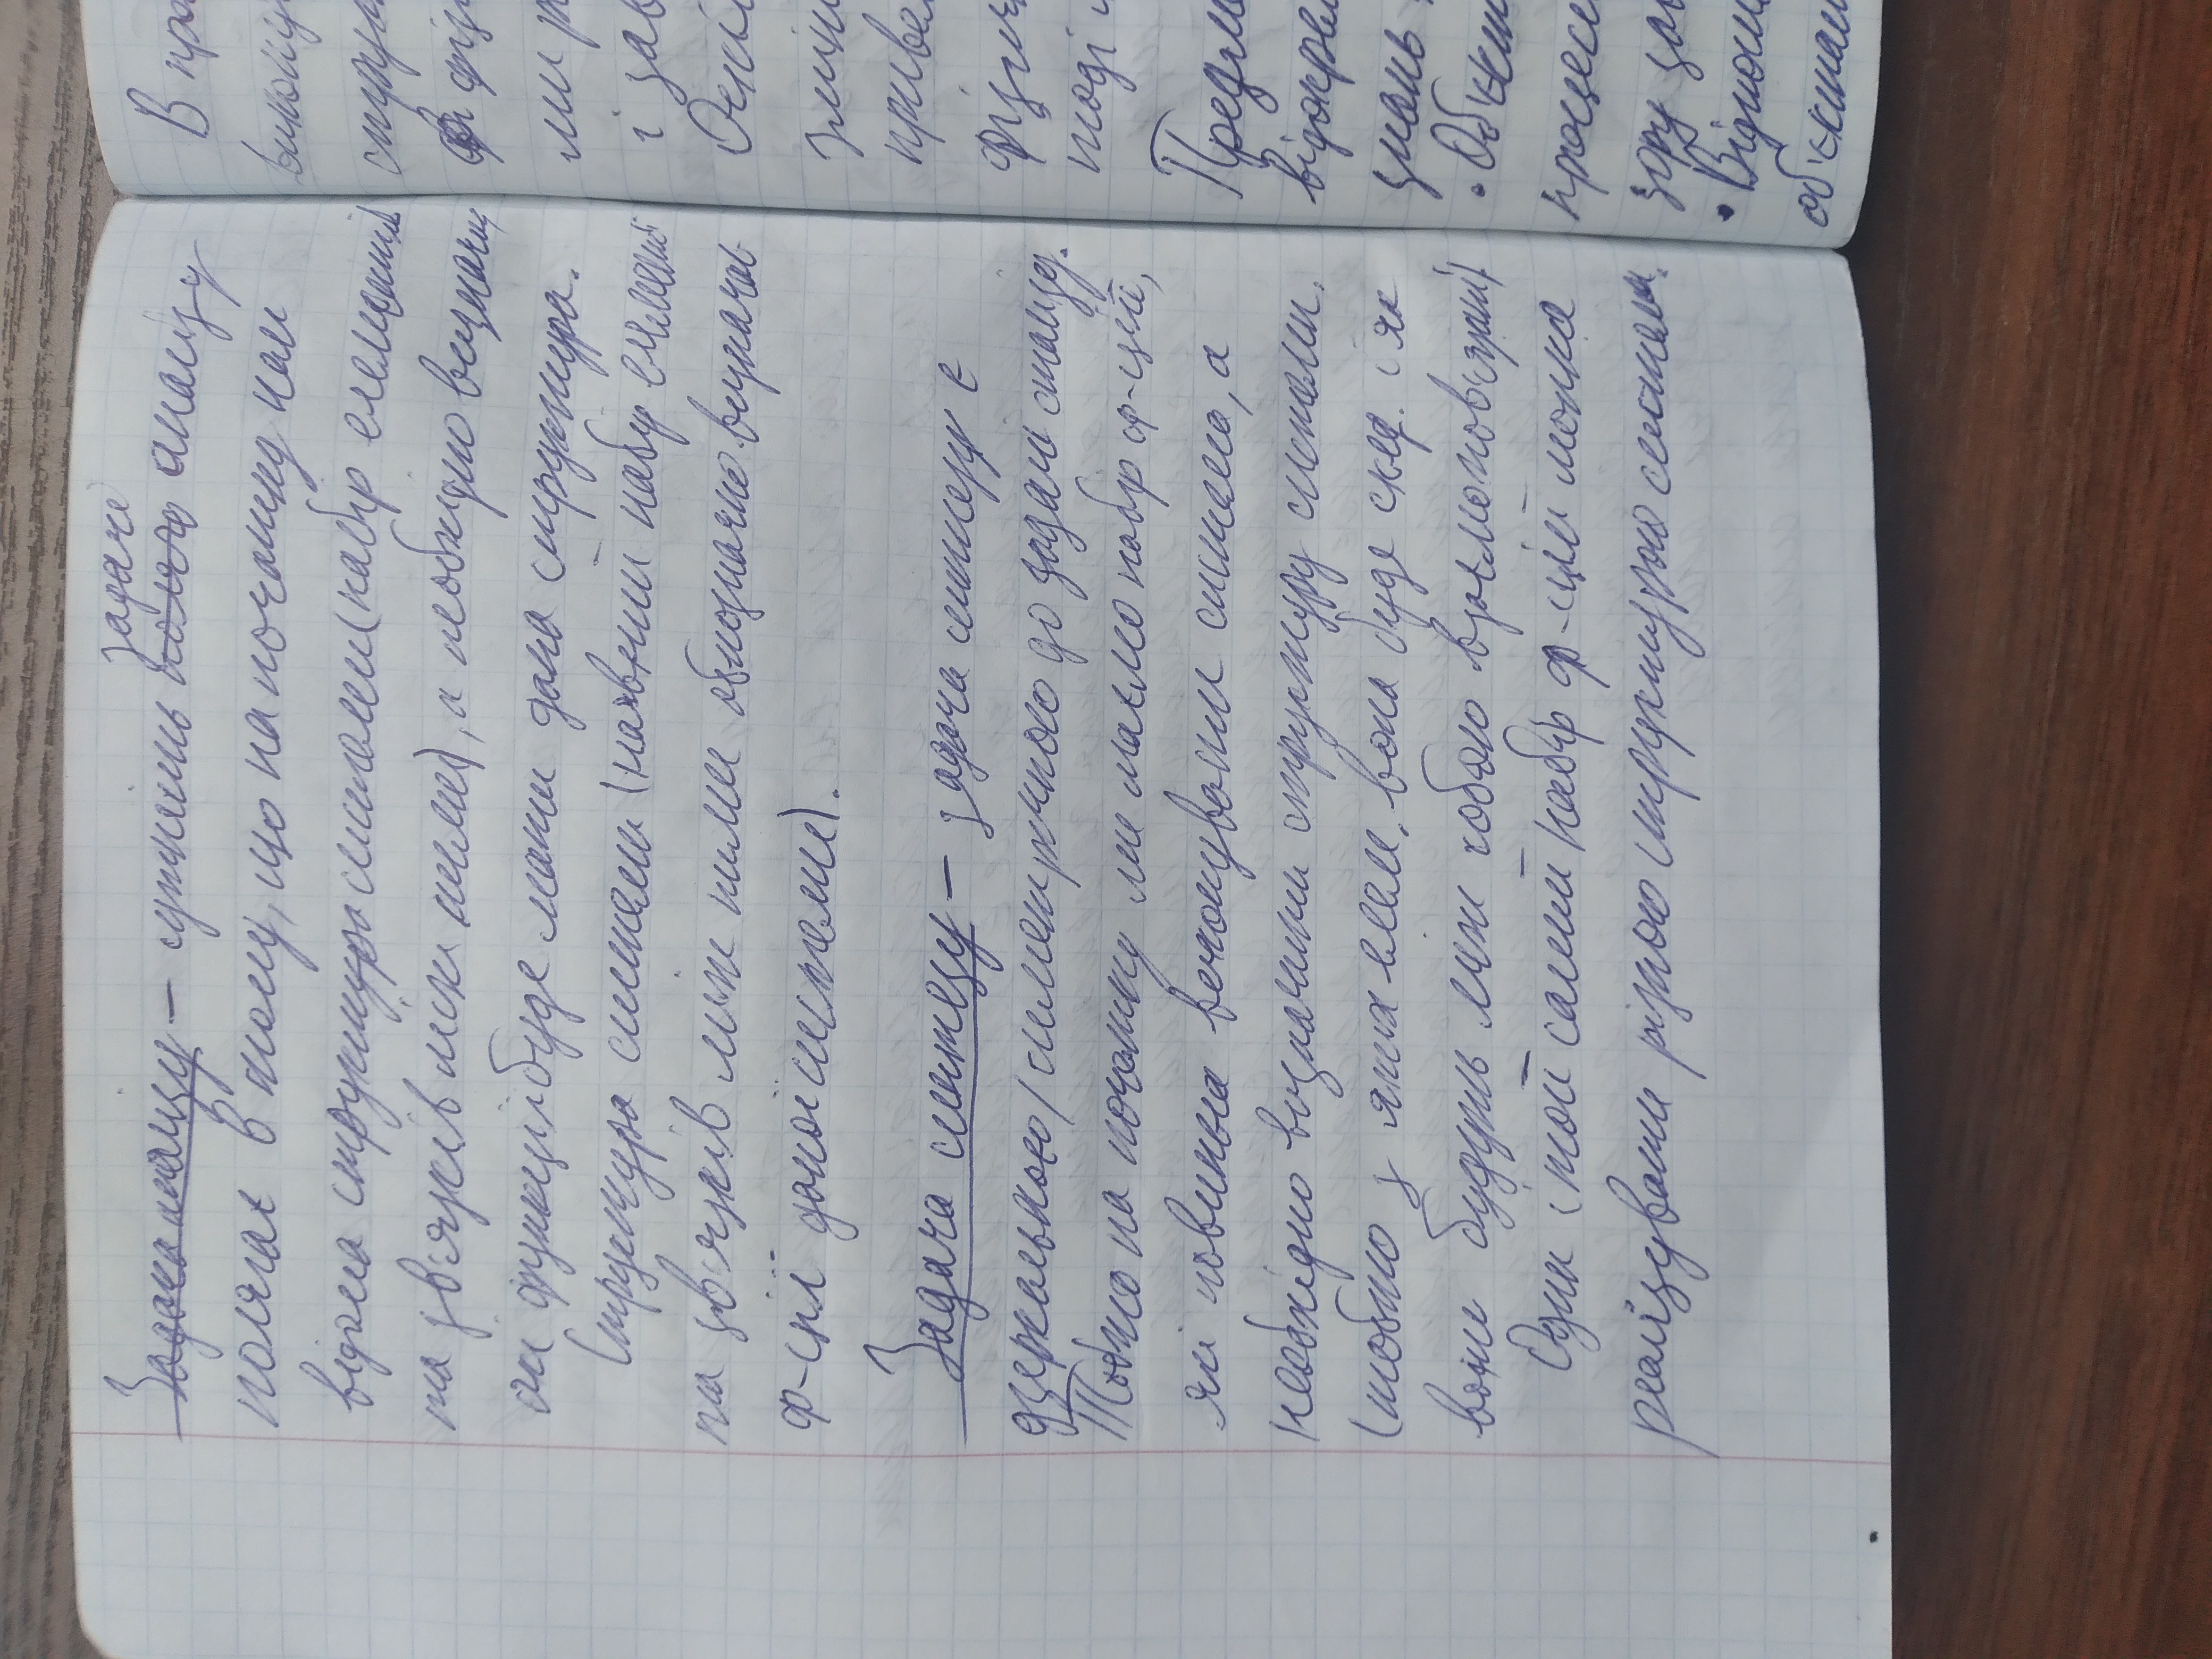 задачі
Задача аналізу – сутність поляга аналізу
полягає в тому, що на початку нам
відома структура системи (набір елементів
та зв'язків між ними), а необхідно визначит
які функції буде мати дана структура.
Структура системи (наявний набір елементів
та зв'язків між ними однозначно визначає
ф-ції даної системи).
Задача синтезу – задача синтезу є
дзеркальною/симетричною до задачі аналізу.
Тобто на початку ми маємо набір ф-цій,
які повинна виконувати система, а
необхідно визначити структуру системи.
(тобто з яких елем. вона буде склад. і як
вони будуть між собою взаємопов'язані).
Один і той самий набір ф-цій можна
реалізувати різною структурою системи.
В про
викону
струк
фізи
ми р
і зав
Оскі
зміни
привел
фізичн
тоді
Предме
відокрем
знань
• Об'єкт
процеси
зору зав
• Віднош
об'єктам